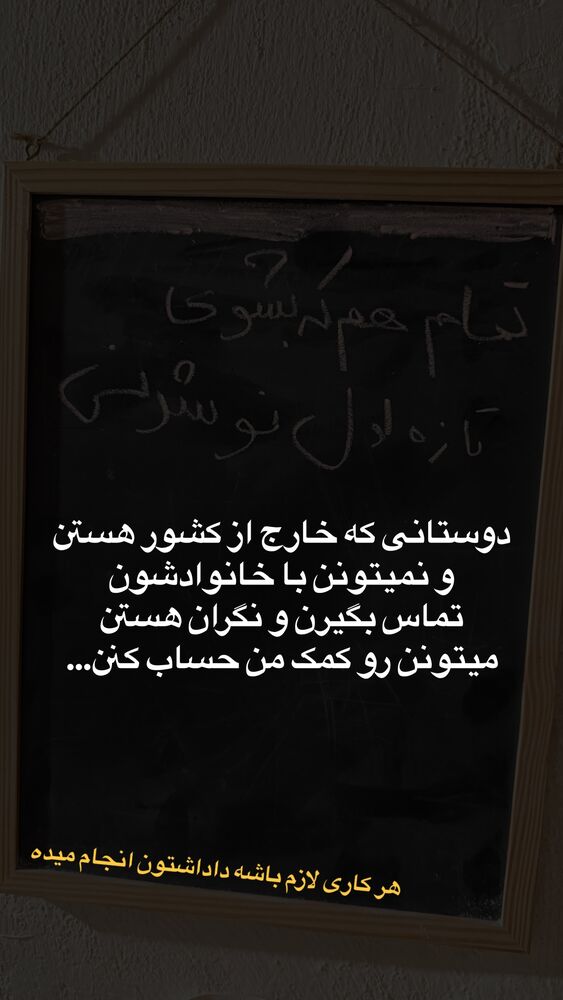 تمام هم که بشوی
تازه اول تو
دوستانی که خارج از کشور هستن
و نمیتونن با خانوادشون
تماس بگیرن و نگران هستن
میتونن رو کمک من حساب کنن...
هر کاری لازم باشه داداشتون انجام میده